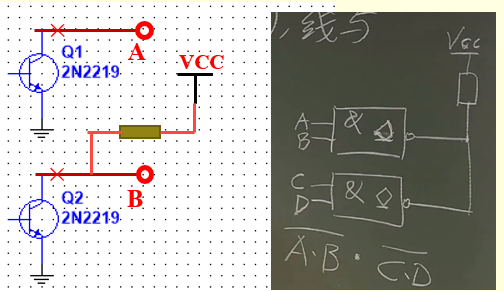 A
Q1
2N2219
VCC
B
Q2
2N2219
线与
Vcc
A
B
&
C
D
&
A·B · C·D